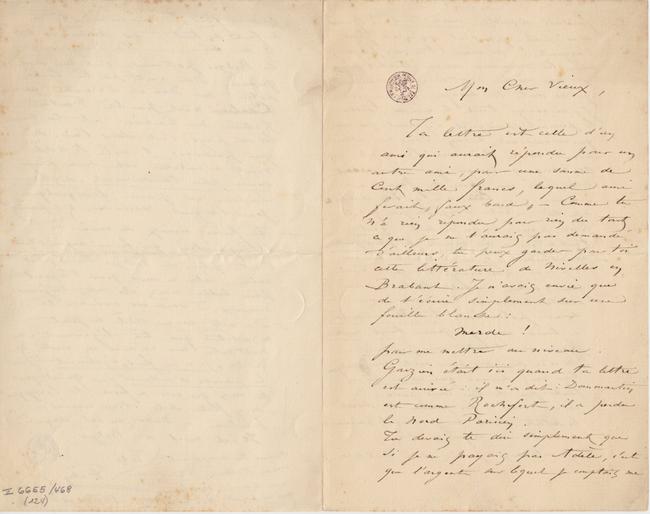 Mon Cher Vieux,
Ta lettre est celle d'un
ami qui aurait répondu pour un
autre ami, pour une somme de
Cent mille francs, lequel ami
ferait, faux bond, – Comme tu
n'as rien répondu pour rien du tout
ce que je ne t'aurais pas demandé
d'ailleurs, tu peux garder pour toi
cette littérature de Nivelles en
Brabant. Je n'avais envie que
de t'écrire simplement sur une
feuille blanche :
Merde !
pour me mettre au niveau.
était ici quand ta lettre
est arrivée : il m'a dit : Dommartin
est comme Rochefort, il a perdu
le Nord Parisien.
Tu devais te dire simplement que
si je ne payais pas Adèle, c'est
que l'argent sur lequel je comptais ne
I 6655/468
(124)